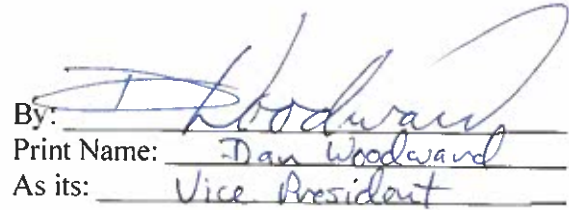 By: D Woodward
Print Name: Dan Woodward
As its: Vice President